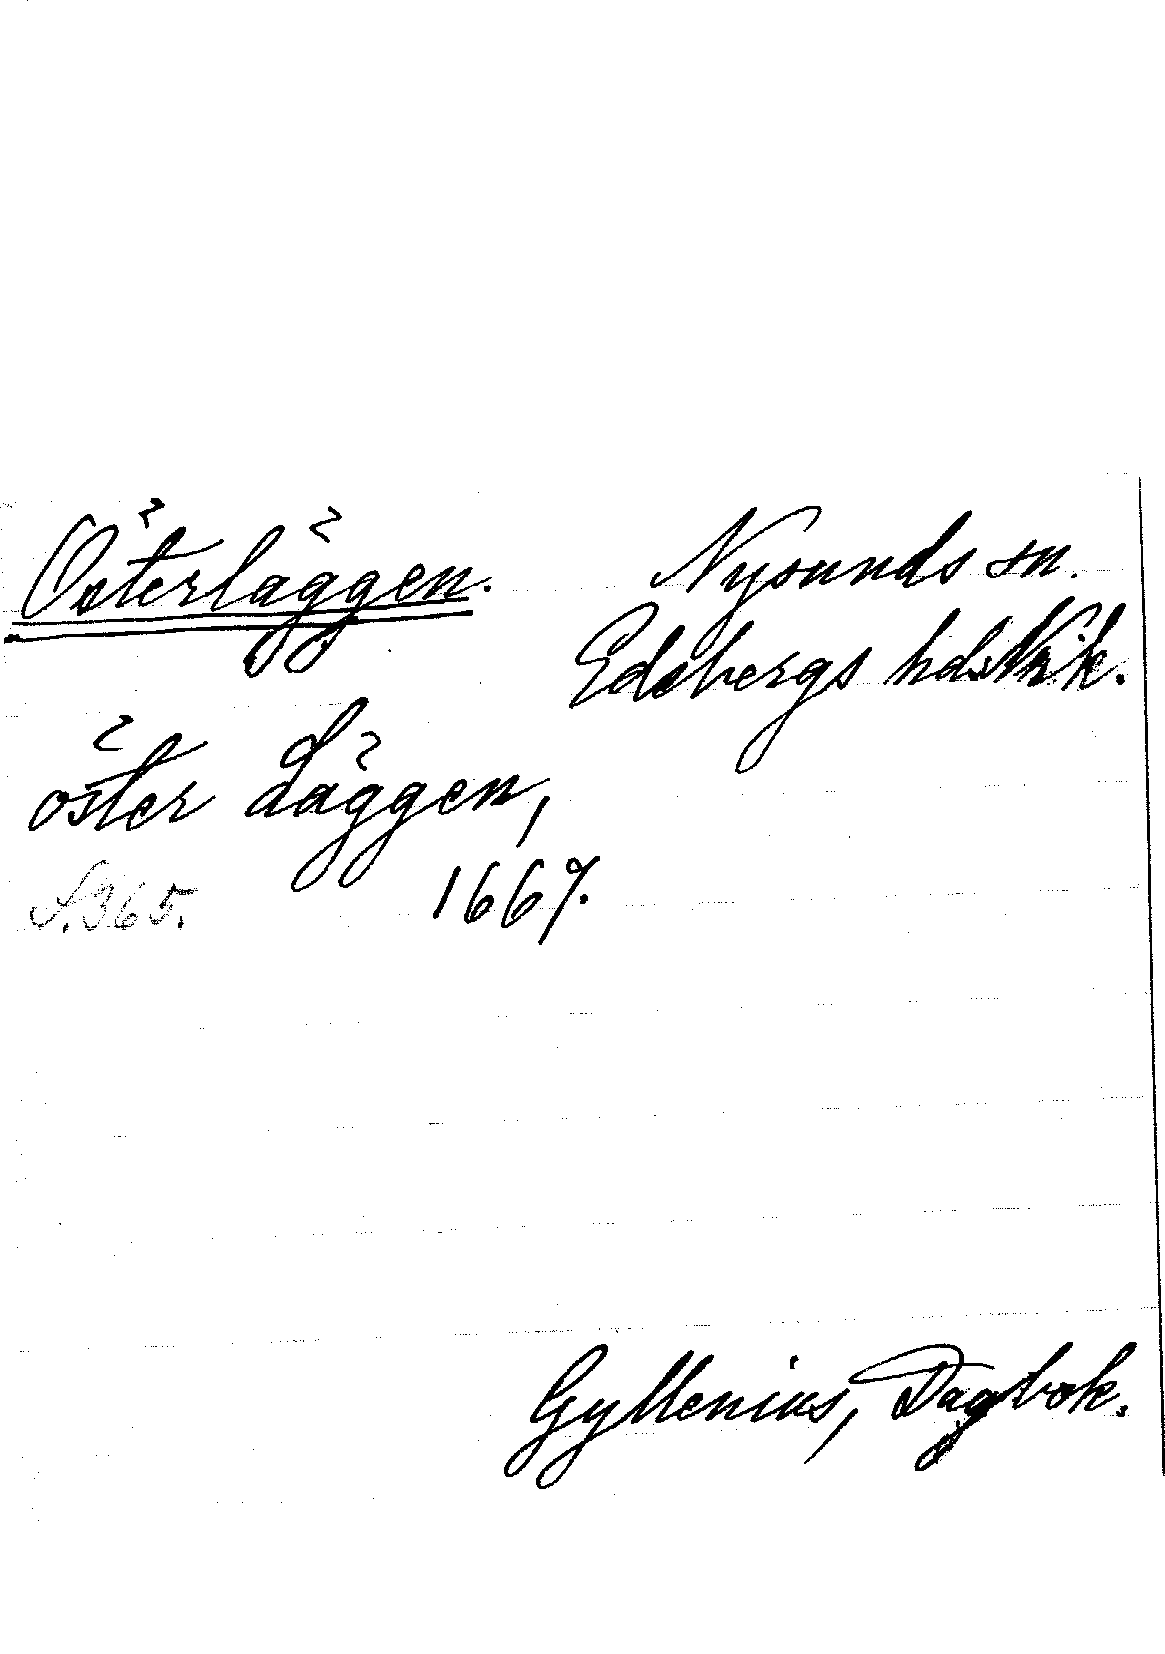 Österläggen.
Nysunds sn.
Edsbergs hd. Nrk.
öster Läggen,
S. 365. 1667.
Gyllenius, Dagbok.